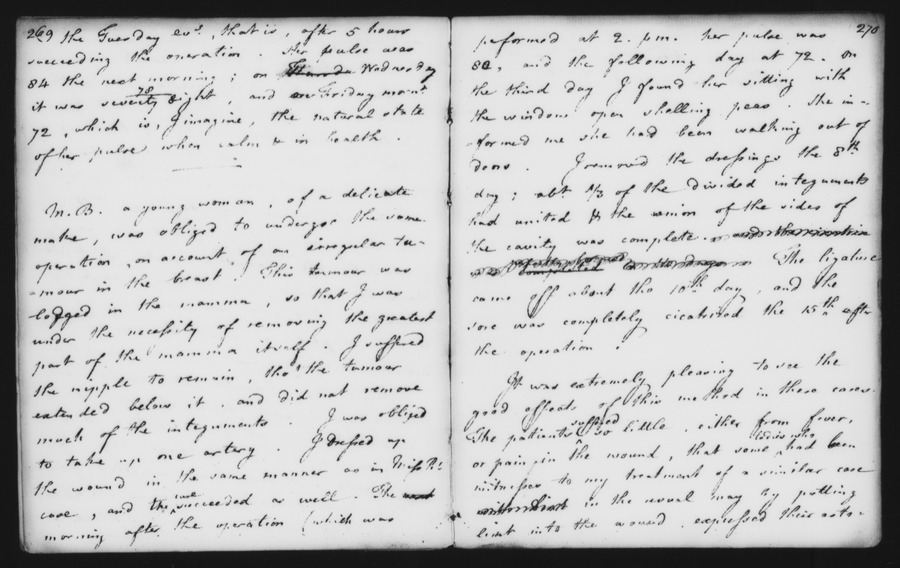 269
the Tuesday evg., that is, after 5 hours
succeeding the operation. Her pulse was
84 the next morning; on Wednesday
it was seventy 78 eight, and on Friday morng.
72, which is, I imagine, the natural state
of her pulse when calm & in health.
M. B. a young woman, of a delicate
make, was obliged to undergo the same
operation, on account of an irregular tu-
mour in the breast. This tumour was
lodged in the mamma, so that I was
under the necessity of removing the greatest
part of the mamma itself. I suffered
the nipple to remain, tho' the tumour
extended below it, and did not remove
much of the integuments. I was obliged
to take up one artery. I dressed up
the wound in the same manner as in Miss R's
case, and the succeeded as well. The
morning after the operation (which was
270
performed at 2. p.m. her pulse was
80, and the following day at 72. On
the third day I found her sitting with
the window open shelling peas. She in-
formed me she had been walking out of
doors. I removed the dressings the 8th
day; abt. 2/3 of the divided integuments
had united & the union of the sides of
the cavity was complete.
The ligature
came off about the 10th day, and the
sore was completely cicatrized the 15th after
the operation.
It was extremely pleasing to see the
good effects of this method in these cases.
The patients suffered so little, either from fever,
or pain in the wound, that some ladies who had been
witnesses to my treatment of a similar case
in the usual way by putting
lint into the wound, expressed their asto-